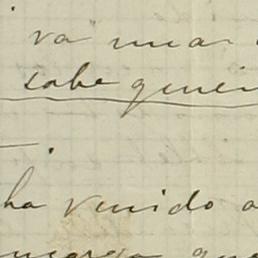 va una
sabe quien
ha venido a